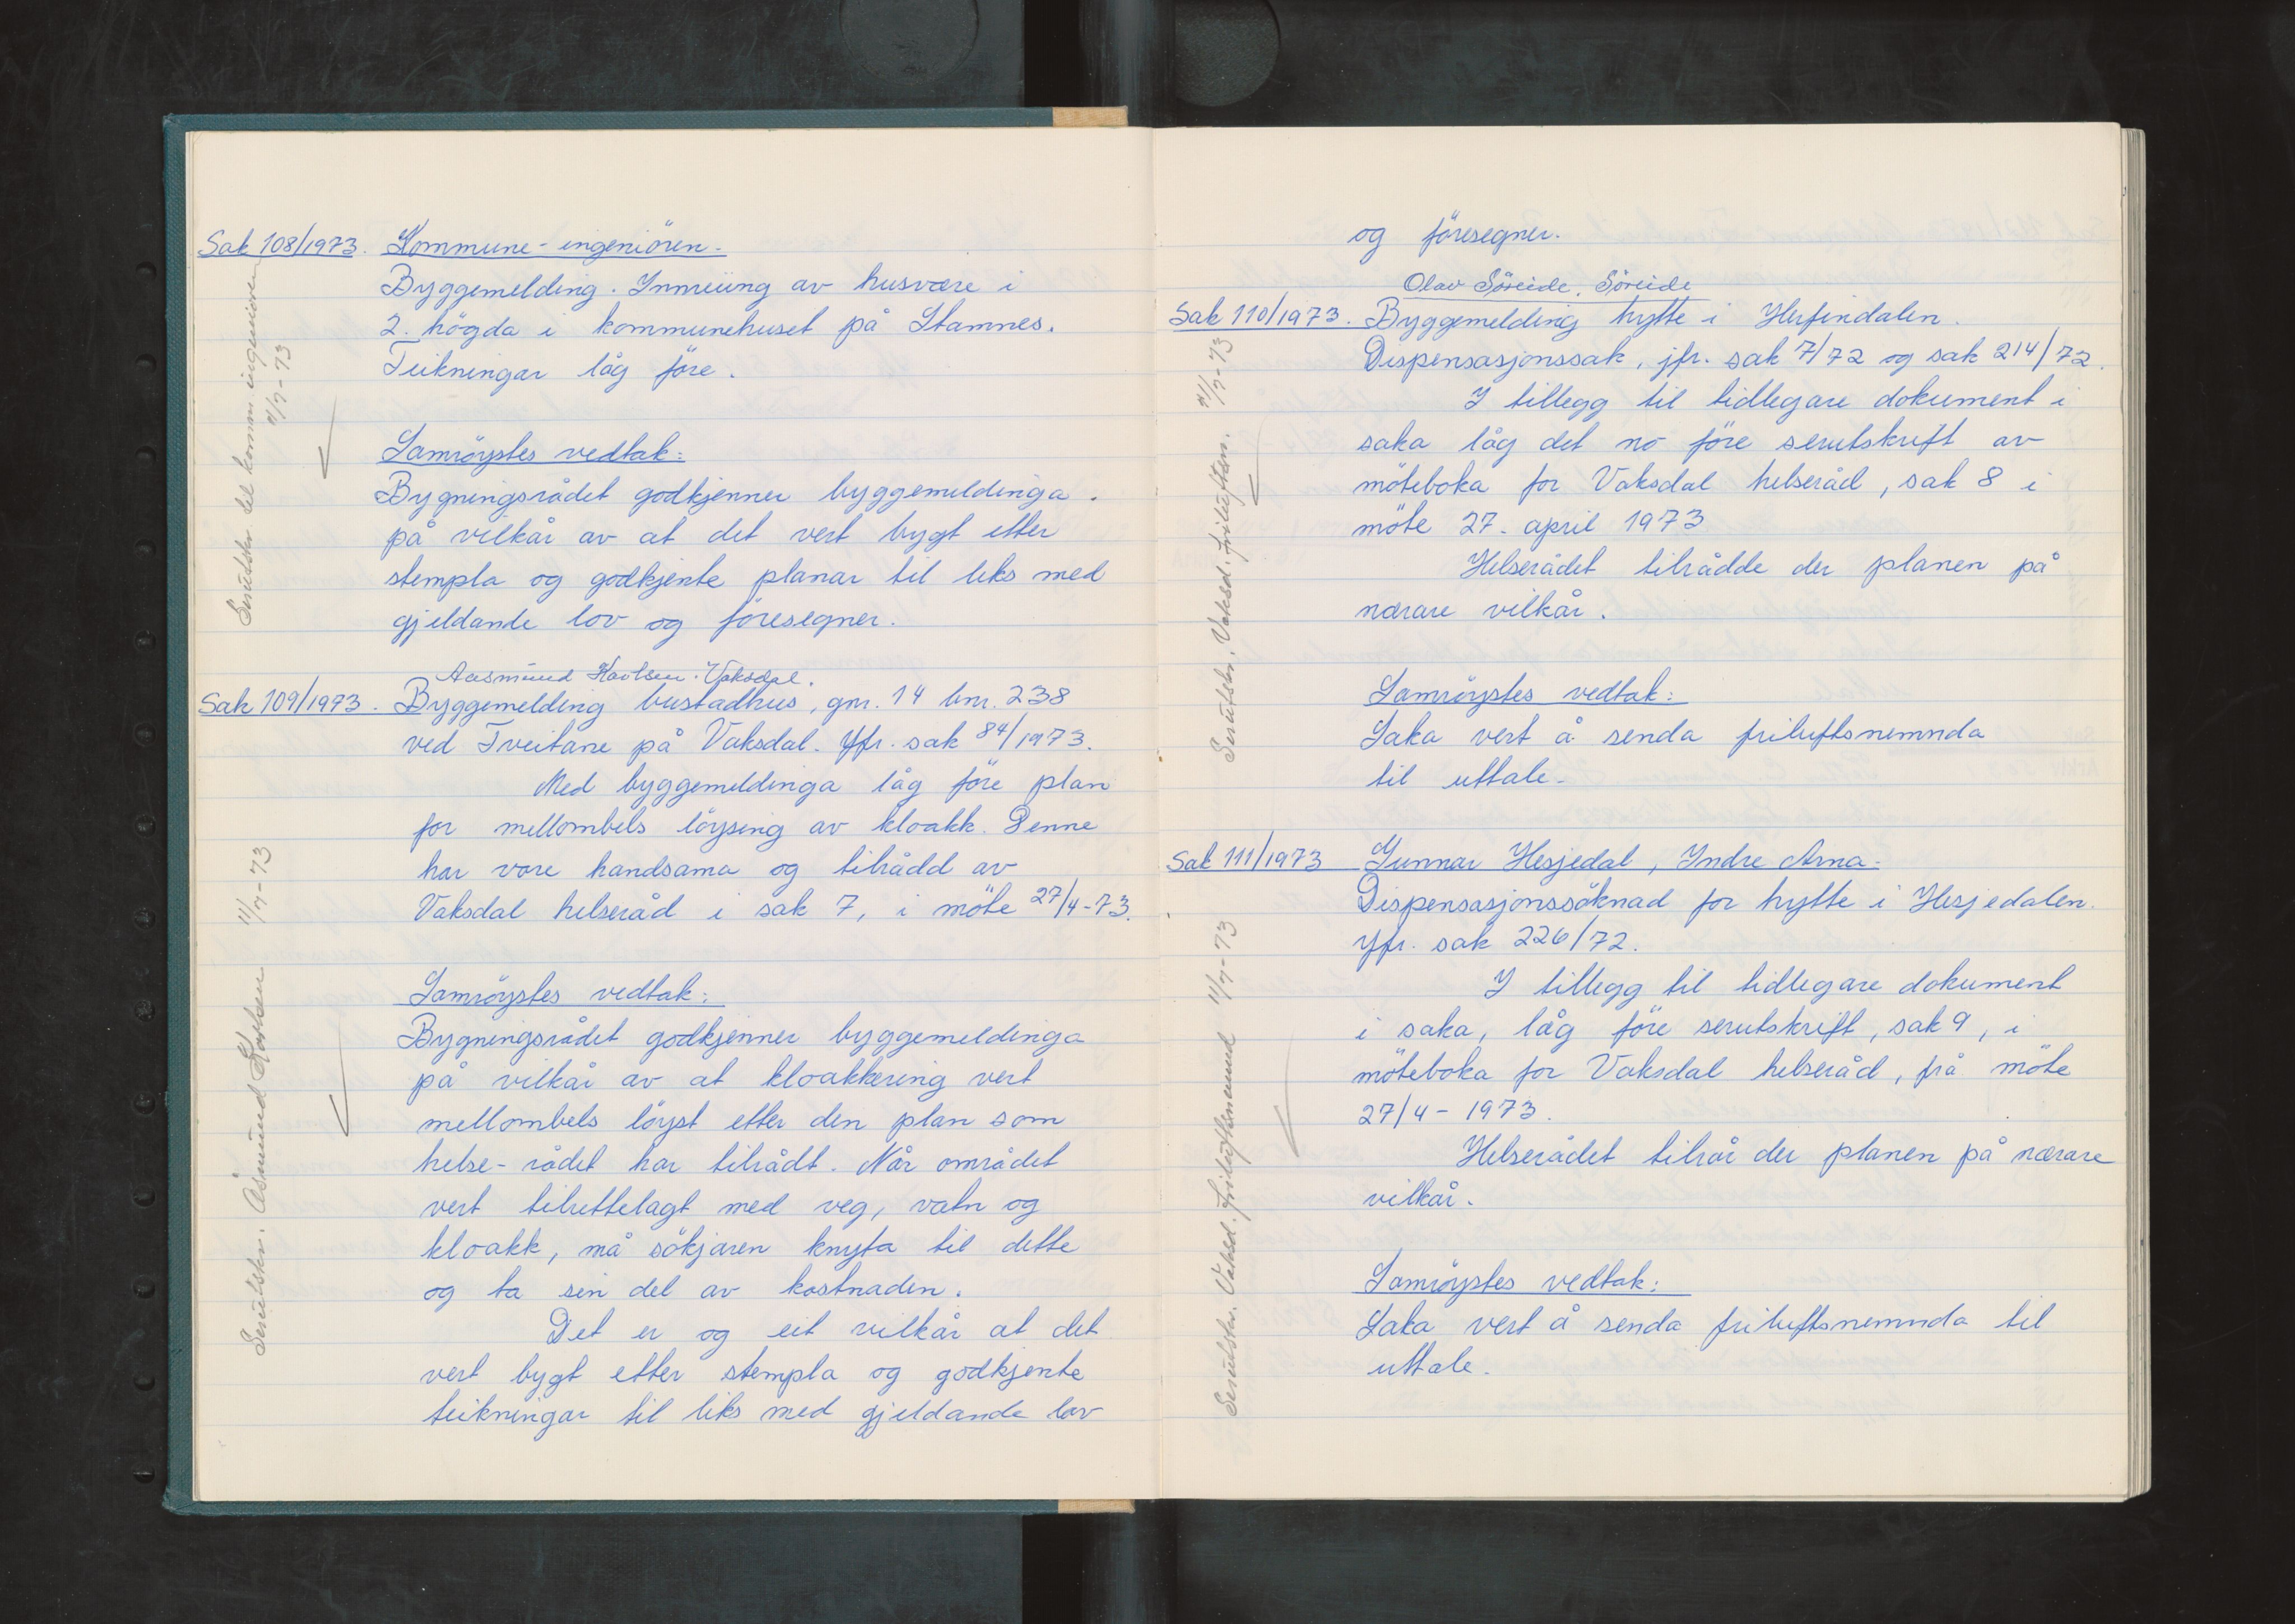 Sak 108/1973. Kommune-ingeniören.
Byggemelding. Innreiing av husvære i
2. högda i kommunehuset på Stamnes.
Teikningar låg före.
Samröystes vedtak:
Bygningsrådet godkjenner byggemeldinga.
på vilkår av at det vert bygt etter
stempla og godkjente planar til liks med
gjeldande lov og föresegner.
Serutskr. til komm. ingeniören
11/7-73
Aasmund Karlsen. Vaksdal.
Sak 109/1973. Byggemelding bustadhus, gnr. 14 bnr. 238
ved Tveitane på Vaksdal. Jfr. sak 84/1973.
Med byggemeldinga låg före plan
for mellombels löysing av kloakk. Denne
har vore handsama og tilrådd av
Vaksdal helseråd i sak 7, i möte 27/4-73.
Samröystes vedtak:
Bygningsrådet godkjenner byggemeldinga
på vilkår av at kloakkering vert
mellombels löyst etter den plan som
helse-rådet har tilrådt. Når området
vert tilrettelagt med veg, vatn og
kloakk, må sökjaren knyta til dette
og ta sin del av kostnaden.
Det er og eit vilkår at det
vert bygt etter stempla og godkjente
teikningar til liks med gjeldande lov
Serutskr. Åsmund Karlsen 11/7-73
og föresegner.
Olav Söreide, Söreide
Sak 110/1973. Byggemelding hytte i Herfindalen.
Dispensasjonssak, jfr. sak 7/72 og sak 214/72.
I tillegg til tidlegare dokument i
saka låg det no före serutskrift av
möteboka for Vaksdal helseråd, sak 8 i
möte 27. april 1973
Helserådet tilrådde der planen på
nærare vilkår.
Samröystes vedtak:
Saka vert å senda friluftsnemnda
til uttale.
Serutskr. Vaksd. friluftsn. 11/7-73
Sak 111/1973 Gunnar Hesjedal, Indre Arna.
Dispensasjonssöknad for hytte i Hesjedalen.
Jfr. sak 226/72.
I tillegg til tidlegare dokument
i saka, låg före serutskrift, sak 9, i
möteboka for Vaksdal helseråd, frå möte
27/4-1973.
Helserådet tilrår der planen på nærare
vilkår.
Samröystes vedtak:
Saka vert å senda friluftsnemnda til
uttale.
Serutskr. Vaksd. friluftsnemnd 11/7-73